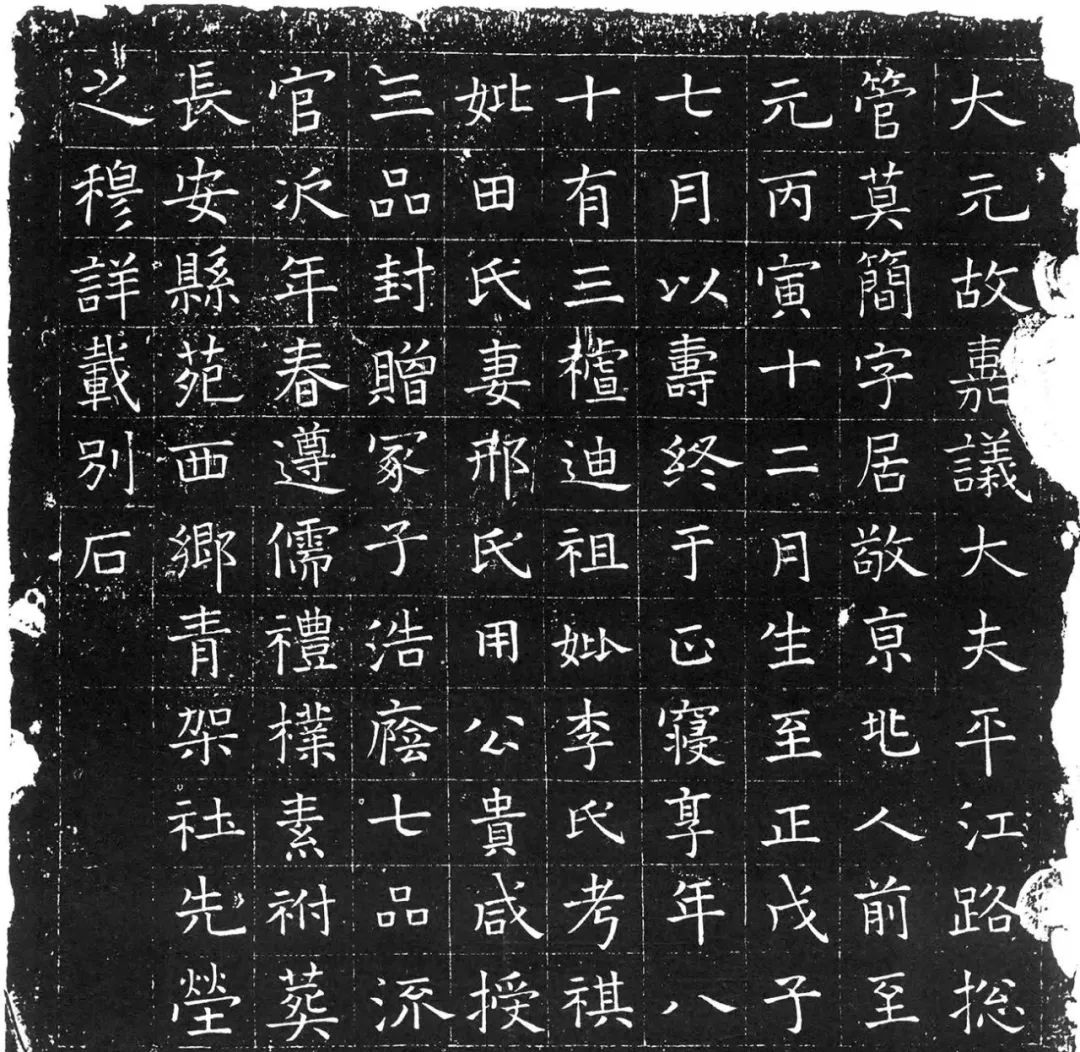 大元故嘉議大夫平江路揔
管莫簡字居敬亰兆人前至
元丙寅十二月生至正戊子
七月以壽終于正寢享年八
十有三迪祖妣李氏考祺
妣田氏妻邢氏用公貴咸授
三品封贈冢子浩廕七品流
官次年春遵儒禮樸素祔葬
長安縣苑西鄉青架社先塋
之穆詳載別石